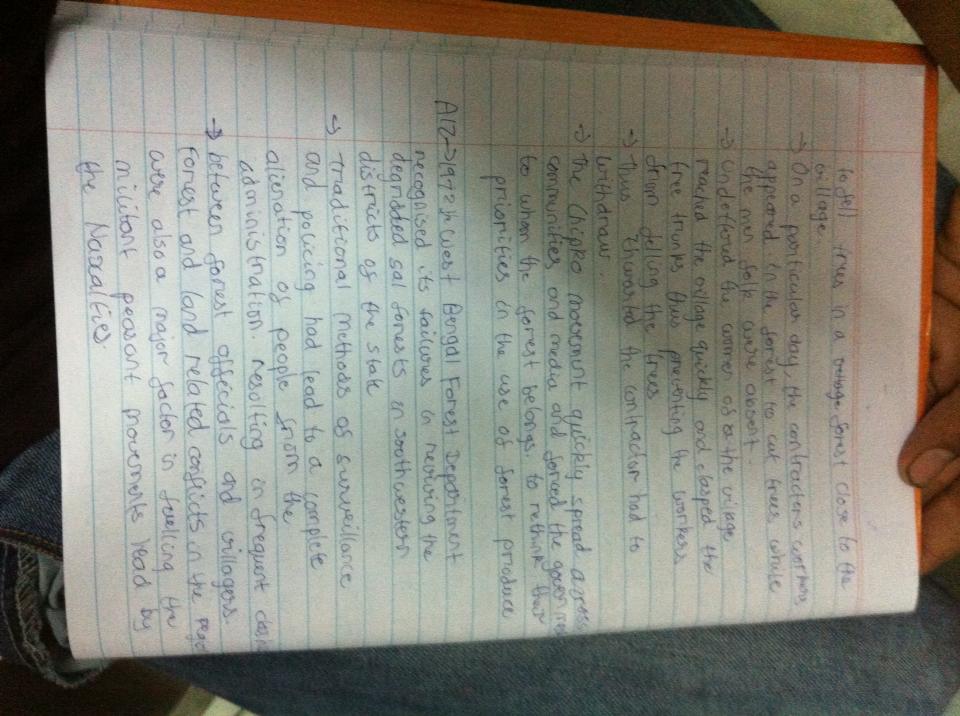 to fell trees in a forest close to the
village.
→ On a particular day, the contractors workers
appeared in the forest to cut trees while
the men folk were absent.
→ Undeffered the women of the village
reached the village quickly and clasped the
tree trunks thus preventing the workers
from felling the trees
→ Thus thwarted the contractor had to
withdraw.
→ The Chipko movement quickly spread across
communities and media and forced the
to whom the forest belongs. to rethink their
priorities in the use of forest produce
A12→ 1972 in West Bengal Forest Department
recognised its failures in reviving the
degraded sal forests in southwestern
districts of the state
→ Traditional methods of surveillance
and policing had lead to a complete
alienation of people from the
administration. resulting in frequent
→ between forest officials and villagers.
Forest and land related conflicts in the
were also a major factor in fuelling the
militant peasant movements lead by
the Naxalties.